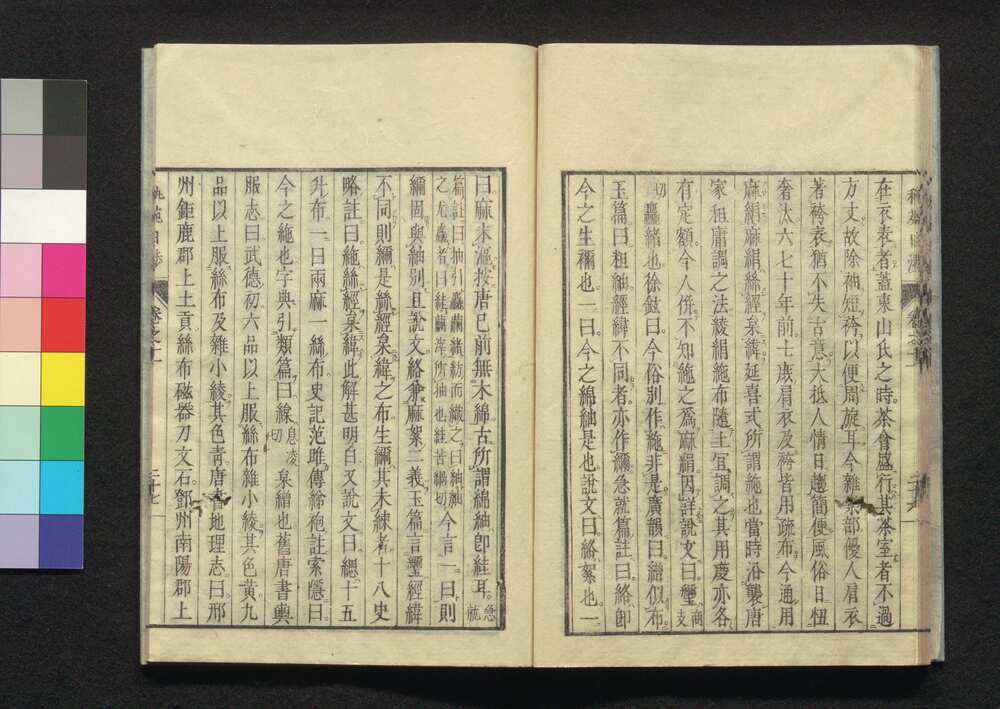 在衣表者蓋東山氏之時茶會盛行其茶室者不過
方丈故除袖短袴以便周旋耳今雜劇部優人肩衣
著袴表猶不失古意大抵人情日趨簡便風俗日忸
奢汰六七十年前士庶肩衣及袴皆用疏布今通用
麻絹麻絹絲經枲緯延喜式所謂絁也當時沿襲唐
家租庸調之法綾絹絁布隨土宜調之其用度亦各
有定額今人併不知絁之爲麻絹因詳說文曰 商支
切 麤緒也徐鉉曰今俗別作絁非是廣韻曰繒似布
玉篇曰粗紬經緯不同者亦作 急就篇註曰絡卽
今之生 也一曰今之綿紬是也說文曰絡絮也一
曰麻未漚按唐已前無木綿古所謂綿紬卽絓耳 急就
篇註曰抽引麤繭緒紡而織之曰紬紬
之尤麤者曰絓繭滓所抽也絓苦 切 今言一曰則
固與紬別且說文絡兼麻絮二義玉篇言 經緯
不同則 是絲經枲緯之布生 其未練者十八史
略註曰絁絲經枲緯此解甚明白又說文曰緦十五
升布一曰兩麻一絲布史記范雎傳綈袍註索隱曰
今之絁也字典引類篇曰線 息淩切 枲繒也舊唐書輿
服志曰武德初六品以上服絲布雜小綾其色黃九
品以上服絲布及雜小綾其色靑唐書地理志曰邢
州鉅鹿郡上土貢絲布磁器刀文石鄧州南陽郡上
卷之十一
二十七